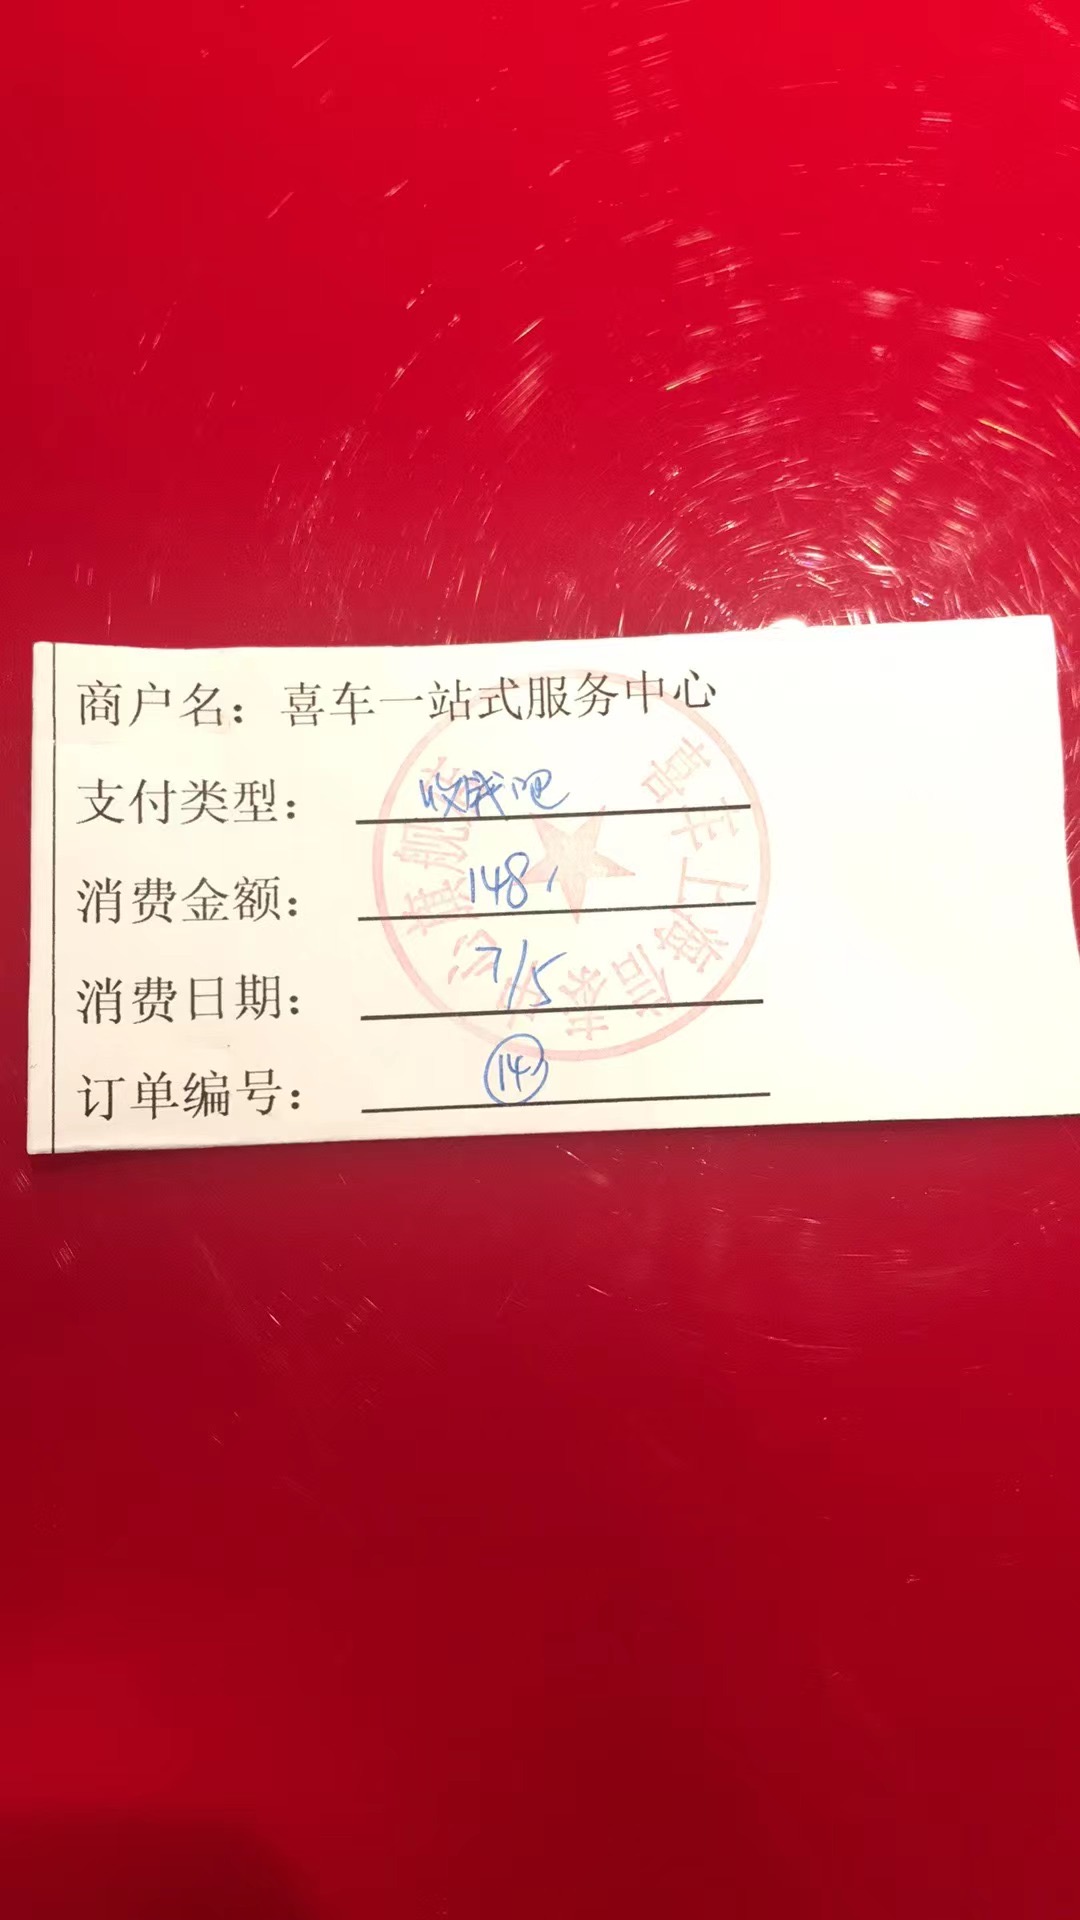 商户名：喜车一站式服务中心
支付类型：收钱吧
消费金额：148
消费日期：7/5
订单编号：14
喜车上海
中心旗舰